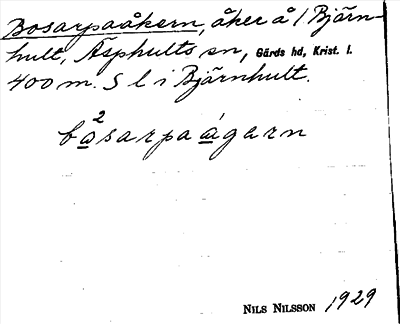 Bosarpaåkern, åker å 1 Björn-
hult, Äsphults sn, Gärds hd, Krist. l.
400 m. S l i Björnhult.
bo²sarpaágarn
NILS NILSSON 1929